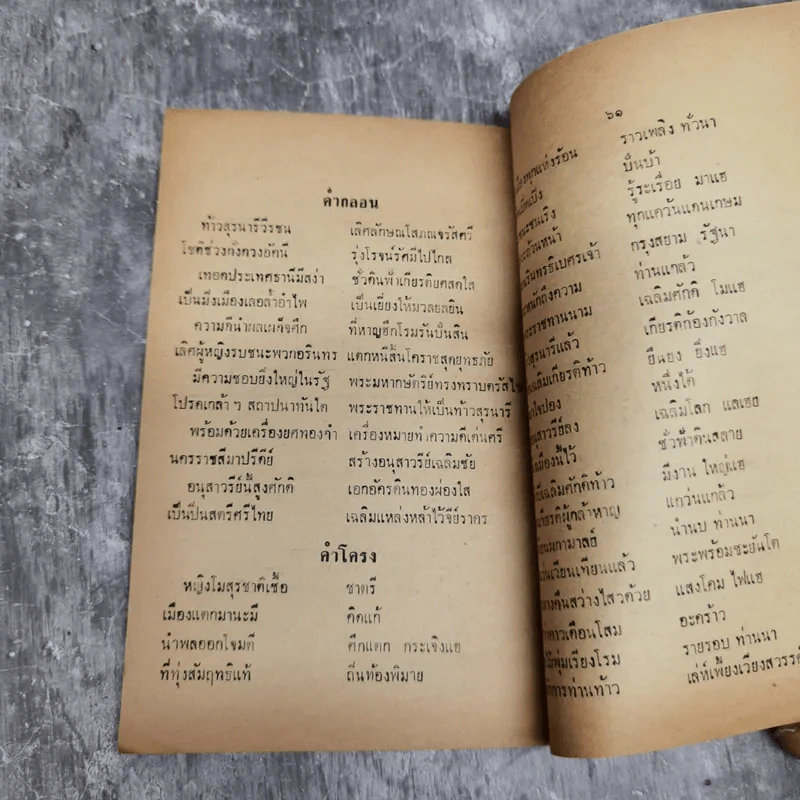 คำกลอน
ท้าวสุรนารีวีรชน เลิศลักษณโสภณจรัสศรี
โชติช่วงดังดวงอัคนี รุ่งโรจน์รัศมีไปไกล
เทอดประเทศธานีมีสง่า ชั่วดินฟ้าเกียรติยศสดใส
เป็นมิ่งเมืองเลอล้ำอำไพ เป็นเยี่ยงให้มวลยลยิน
ความดีนำผลเผด็จศึก ที่หาญฮึกโรมรันบั้นสิ้น
เลิศผู้หญิงรบชนะพวกอรินทร แตกหนีสิ้นโคราชสุดยุทธภัย
มีความชอบยิ่งใหญ่ในรัฐ พระมหากษัตริย์ทรงทราบ
โปรดเกล้า ฯ สถาปนาทันใด พระราชทานให้เป็นท้าวสุรนารี
พร้อมด้วยเครื่องยศทองคำ เครื่องหมายทำความดีเด่นศรี
นครราชสีมาปรีดีย์ สร้างอนุสาวรีย์เฉลิมชัย
อนุสาวรีย์นี้สูงศักดิ์ เอกอัครดินทองผ่องใส
เป็นปิ่นสตรีศรีไทย เฉลิมแหล่งหล้าไว้จีย์ราดร
คำโครง
หญิงโมสุรชาติเชื้อ ชาตรี
เมืองแตกมานะมี คิดแก้
นำพลออกโจมตี ศึกแตก กระเจิงแฮ
ที่ทุ่งสัมฤทธิแท้ ถิ่นท้องพิมาย
๖๑
แห่งร้อน ราวเพลิง ทั่วนา
บั่นบ้า
ชนะชนเริง รู้ระเรื่อย มาแฮ
ถ้วนหน้า ทุกแคว้นแดนเกษม
นรินทรธิเบศรเจ้า กรุงสยาม รัฐนา
ถึงความ ท่านแกล้ว
พระราชทานนาม เฉลิมศักดิ์ โมแฮ
สุรนารีแล้ว เกียรติก้องกังวาล
เฉลิมเกียรติท้าว ยืนยง ยิ่งแฮ
ใจปอง หนึ่งได้
อนุสาวรีย์ลง เฉลิมโลก แลเฮย
เมืองนี้ไว้ ชั่วฟ้าดินสลาย
เฉลิมศักดิ์ท้าว มีงาน ใหญ่แฮ
เกียรติผู้กล้าหาญ แกว่นแกล้ว
ผกามาลย์ นำนบ ท่านนา
เวียนเทียนแล้ว พระพร้อมชะยันโต
คืนสว่างไสวด้วย แสงโคม ไฟแฮ
ดาวเดือนโสม อะคร้าว
พุ่มเรียงโรม รายรอบ ท่านนา
การท่านท้าว เล่ห์เพี้ยงเวียงสวรรค์